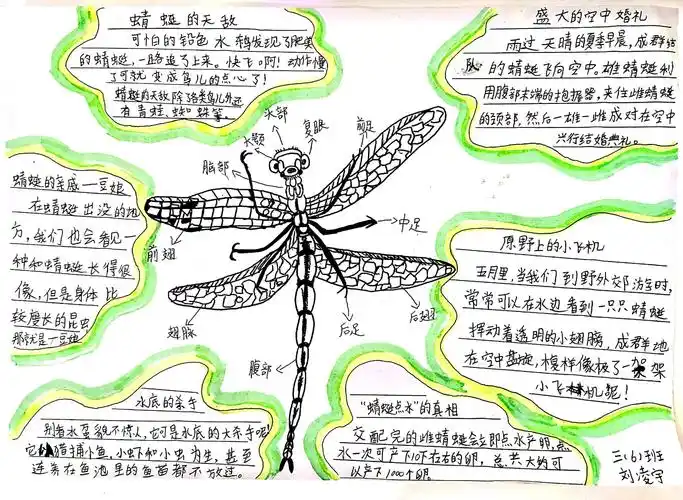 蜻蜓的天敌
可怕的铅色水鸫发现了肥美
的蜻蜓,一路追了上来。快飞啊!动作慢
了可就变成鸟儿的点心了!
蜻蜓的天敌除了各类鸟儿外还
有青蛙、蜘蛛等。
盛大的空中婚礼
雨过天晴的夏季早晨,成群结
队的蜻蜓飞向空中。雄蜻蜓利
用腹部末端的抱握器,夹住雌蜻蜓
的颈部,然后一雄一雌成对在空中
举行结婚典礼。
头部
复眼
前足
头额
胸部
中足
前翅
翅脉
后足
后翅
腹部
蜻蜓的亲戚—豆娘
在蜻蜓出没的地
方,我们也会看见一
种和蜻蜓长得很
像,但是身体比
较瘦长的昆虫
那就是—豆娘
原野上的小飞机
五月里,当我们到野外郊游时,
常常可以在水边看到一只只蜻蜓
挥动着透明的小翅膀,成群地
在空中盘旋,模样像极了一架架
小飞机呢!
水底的杀手
别看水虿貌不惊人,它可是水底的大杀手呢!
它猎捕小鱼、小虾和小虫为生,甚至
连养在鱼池里的鱼苗都不放过。
“蜻蜓点水”的真相
交配完的雌蜻蜓会立即点水产卵,点
水一次可产下10下左右的卵,总共大约可
以产下1000个卵。
三(6)班
刘凌宇